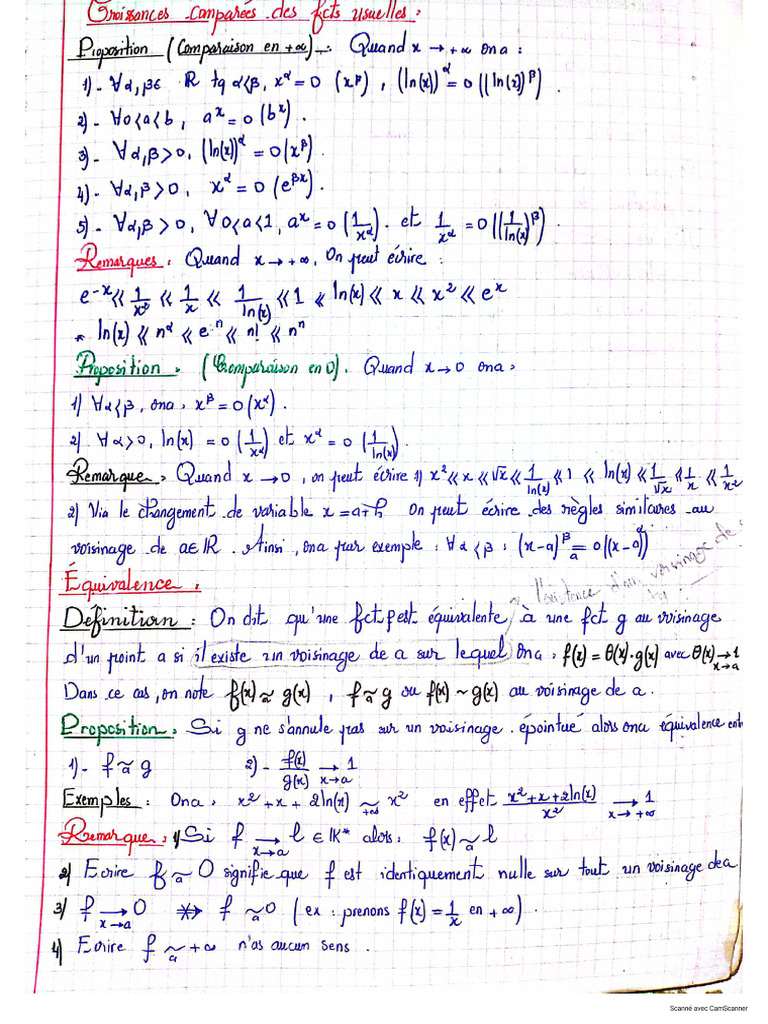 Croissances comparées des fcts usuelles :
Proposition (Comparaison en +∞) _. Quand x → +∞ ona :
1)- ∀α,β∈ ℝ tq α<β, x^α = o (x^β) , (ln(x))^α = o ((ln(x))^β)
2)- ∀0<a<b, a^x = o (b^x) .
3)- ∀α,β>0, (ln(x))^α = o(x^β).
4)- ∀α,β>0, x^α = o (e^{βx}).
5)- ∀α,β>0, ∀0<a<1, a^x = o (1/x^α). et 1/x^α = o((1/ln(x))^β)
Remarques : Quand x → +∞, On peut écrire :
e^{-x} ≪ 1/x² ≪ 1/x ≪ 1/ln(x) ≪ 1 ≪ ln(x) ≪ x ≪ x² ≪ e^x
* ln(x) ≪ n^α ≪ e^n ≪ n! ≪ n^n
Proposition . (Comparaison en 0). Quand x → 0 ona :
1) ∀α<β, ona , x^β = o(x^α) .
2) ∀α>0, ln(x) = o (1/x^α) et x^α = o (1/ln(x)).
Remarque . Quand x → 0 , on peut écrire 1) x² ≪ x ≪ √x ≪ 1/ln(x) ≪ 1 ≪ ln(x) ≪ 1/√x ≪ 1/x ≪ 1/x²
2) Via le changement de variable x = a+h On peut écrire des règles similaires au
voisinage de a∈ℝ . Ainsi , ona par exemple : ∀α<β : (x-a)^β =_a o((x-a)^α)
l'existence d'un voisinage de
Équivalence :
Définition : On dit qu'une fct f est équivalente à une fct g au voisinage
d'un point a si il existe un voisinage de a sur lequel ona , f(x) = θ(x)·g(x) avec θ(x) → 1 x→a
Dans ce cas, on note f(x) ~_a g(x) , f ~_a g ou f(x) ~ g(x) au voisinage de a .
Proposition . Si g ne s'annule pas sur un voisinage épointué alors ona équivalence ent
1)- f ~_a g 2)- f(x)/g(x) → 1 x→a
Exemples : Ona , x² + x + 2ln(x) ~_{+∞} x² en effet (x²+x+2ln(x))/x² → 1 x→+∞
Remarque : 1) Si f → l ∈ IK* alors , f(x) ~_a l x→a
2) Ecrire f ~_a 0 signifie que f est identiquement nulle sur tout un voisinage de a
3) f → 0 x→a ⇏ f ~_a 0 (ex : prenons f(x) = 1/x en +∞) .
4) Ecrire f ~_a +∞ n'as aucun sens .
Scanné avec CamScanner